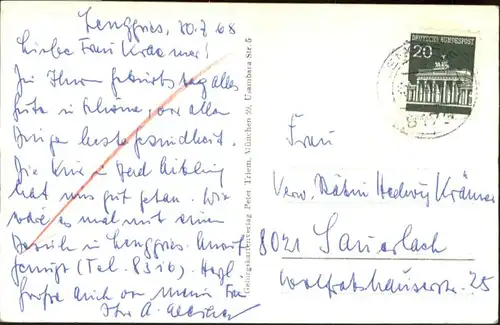 Lenggries, 20.7.68
Liebe Frau Kraemer!
Zu Ihrem Geburtstag alles
Gute u. Schöne, vor allen
Dingen beste Gesundheit.
Die Kur in Bad Aibling
hat uns gut getan. Wie
wäre es mal mit einem
Besuch in Lenggries.
genügt (Tel. 8316). Herzl.
Grüße auch von meiner Frau
Ihr A.
Gebirgskartenverlag Peter Triem, München 59, Usambara Str. 5
20
DEUTSCHE BUNDESPOST
Frau
Verw. Hedwig Krämer
8021 Sauerlach
Wolfratshauserstr. 25